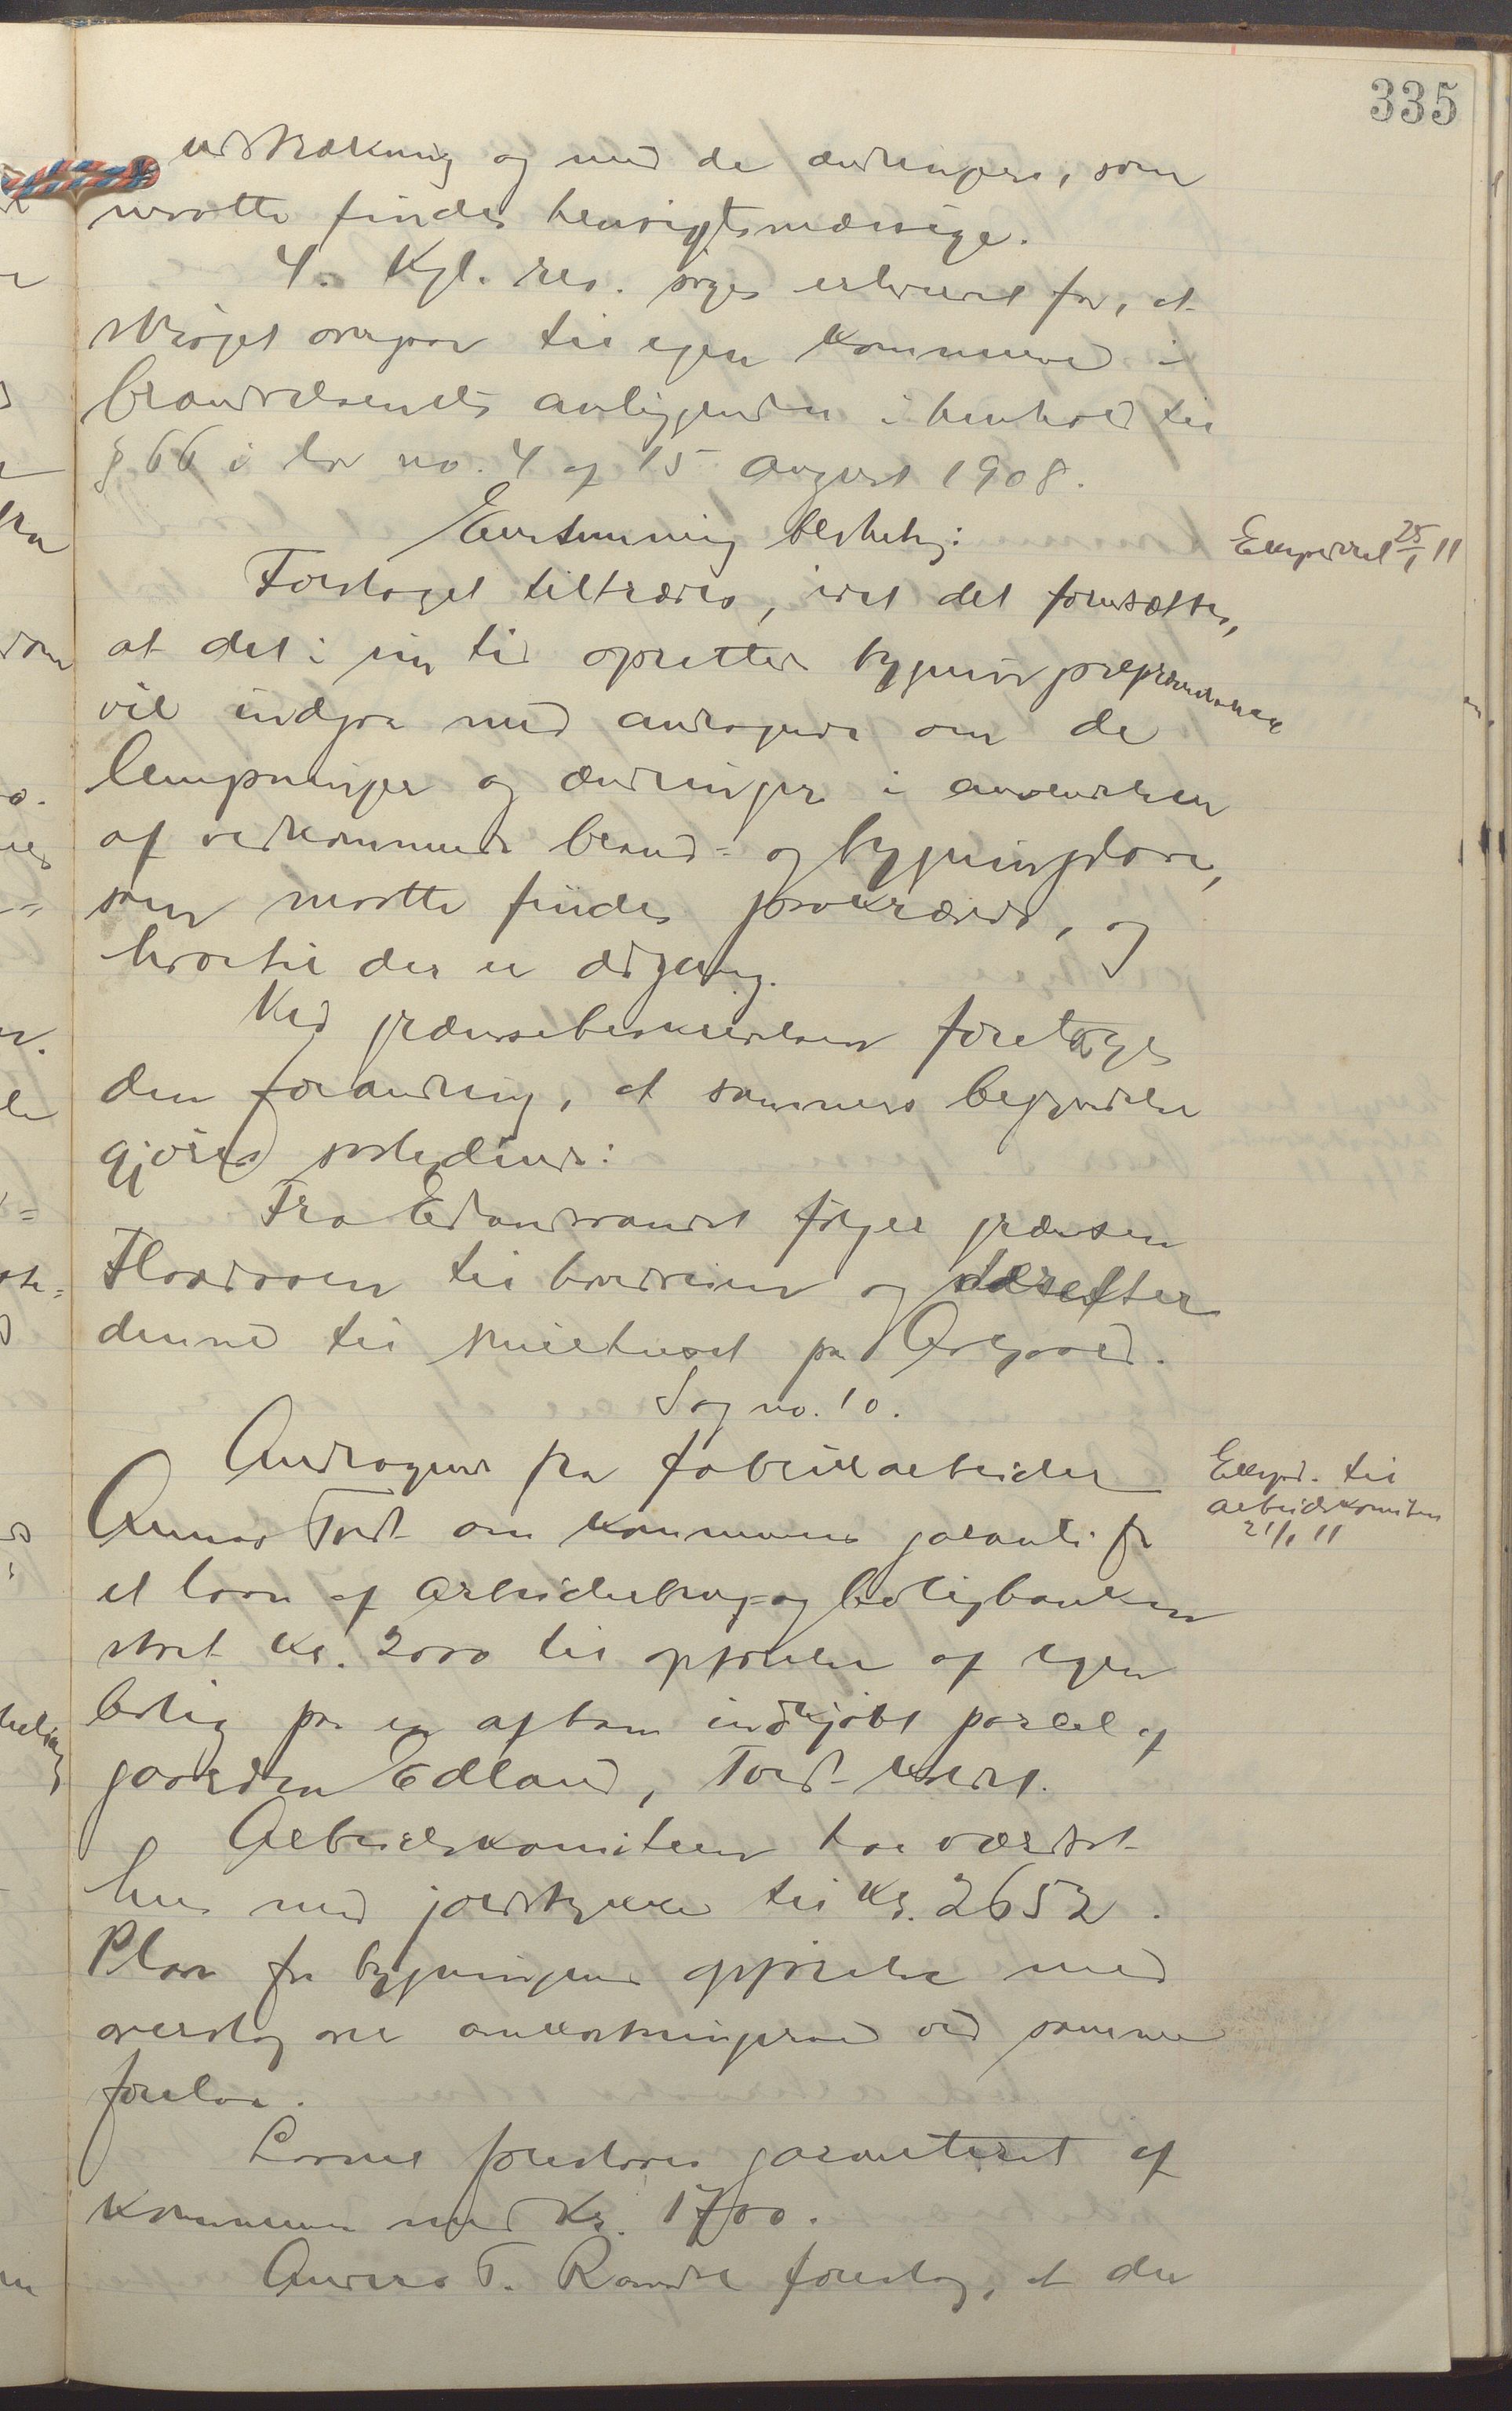 335
udstrækning og med de ændringer, som
maatte findes hensigtsmæssige.
4. Kgl. res. søges erhvervet for, at
strøget overgaar til egen kommune i
brandvæsenets anliggender i henhold til
§ 66 i lov no. 4 af 15 august 1908.
Enstemmig beslutning:
Ekspederet 25/1 11
Forslaget tiltrædes, idet det forudsættes,
at det i sin tid oprettede bygningspræsidium
vil indgaa med andragende om de
lempninger og ændringer i anvendelsen
af vedkommende brand- og bygningslove,
som maatte findes paakrævede, og
hvortil der er adgang.
Ved grænsebeskrivelsen foretages
den forandring, at sammes begyndelse
gjøres saalydende:
Fra Edlandsvandet følger grænsen
Flaadaaen til hovedveien og derefter
denne til skillehuset paa Aalgaard.
Sag no. 10.
Andragende fra fabrikarbeider
Ekspd. til
arbeidskomiteen
21/1 11
Gunnar Tord om kommunens garanti for
et laan af Arbeiderbrug- og boligbanken
stort kr. 2000 til opførelse af egen
bolig paa en af ham indkjøbt parcel af
gaarden Edland,
Arbeidskomiteen har værdsat
hus med jordstykke til kr. 2652.
Plan for bygningens opførelse med
overslag over omkostningerne ved samme
forelaa.
Laanet foreslaaes garanteret af
kommunen med kr. 1700.
Anders T. Ravndal foreslog, at der